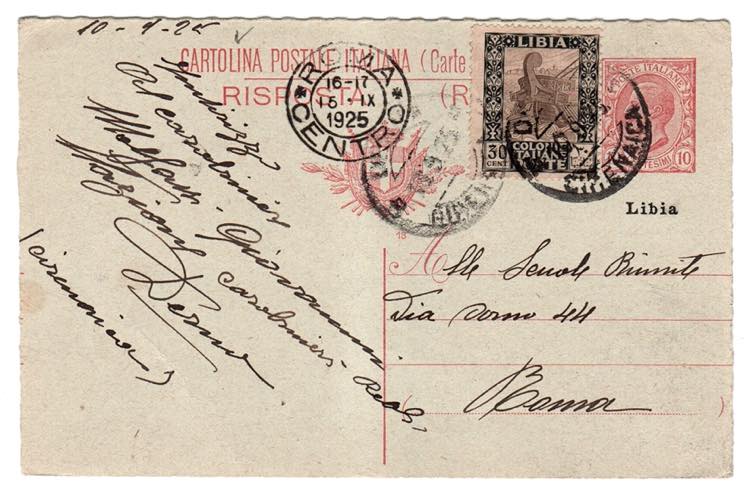 10-9-25
CARTOLINA POSTALE ITALIANA (Carte
RISPOSTA (R
ROMA
CENTRO
16-17
15·IX
1925
LIBIA
30
CENT
COLONIE
ITALIANE
POSTE
POSTE ITALIANE
CENTESIMI 10
CIRENAICA
Libia
13
Indirizzo
Al carabiniere
Giovanni
Stazione carabinieri Reali
Derna
(cirenaica)
Alle Scuole Riunite
Via Arno 44
Roma